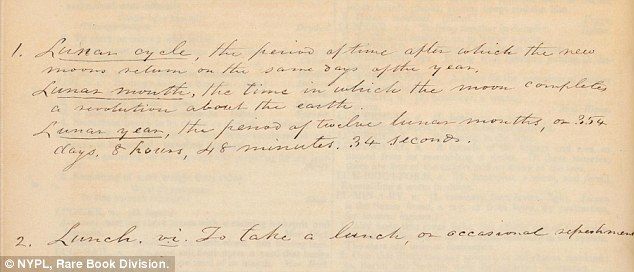 1. Lunar cycle, the period of time after which the new
moons return on the same days of the year.
Lunar month, the time in which the moon completes
a revolution about the earth.
Lunar year, the period of twelve lunar months, or 354
days. 8 hours, 48 minutes. 34 seconds.
2. Lunch. vi. To take a lunch, or occasional refreshmen
© NYPL, Rare Book Division.